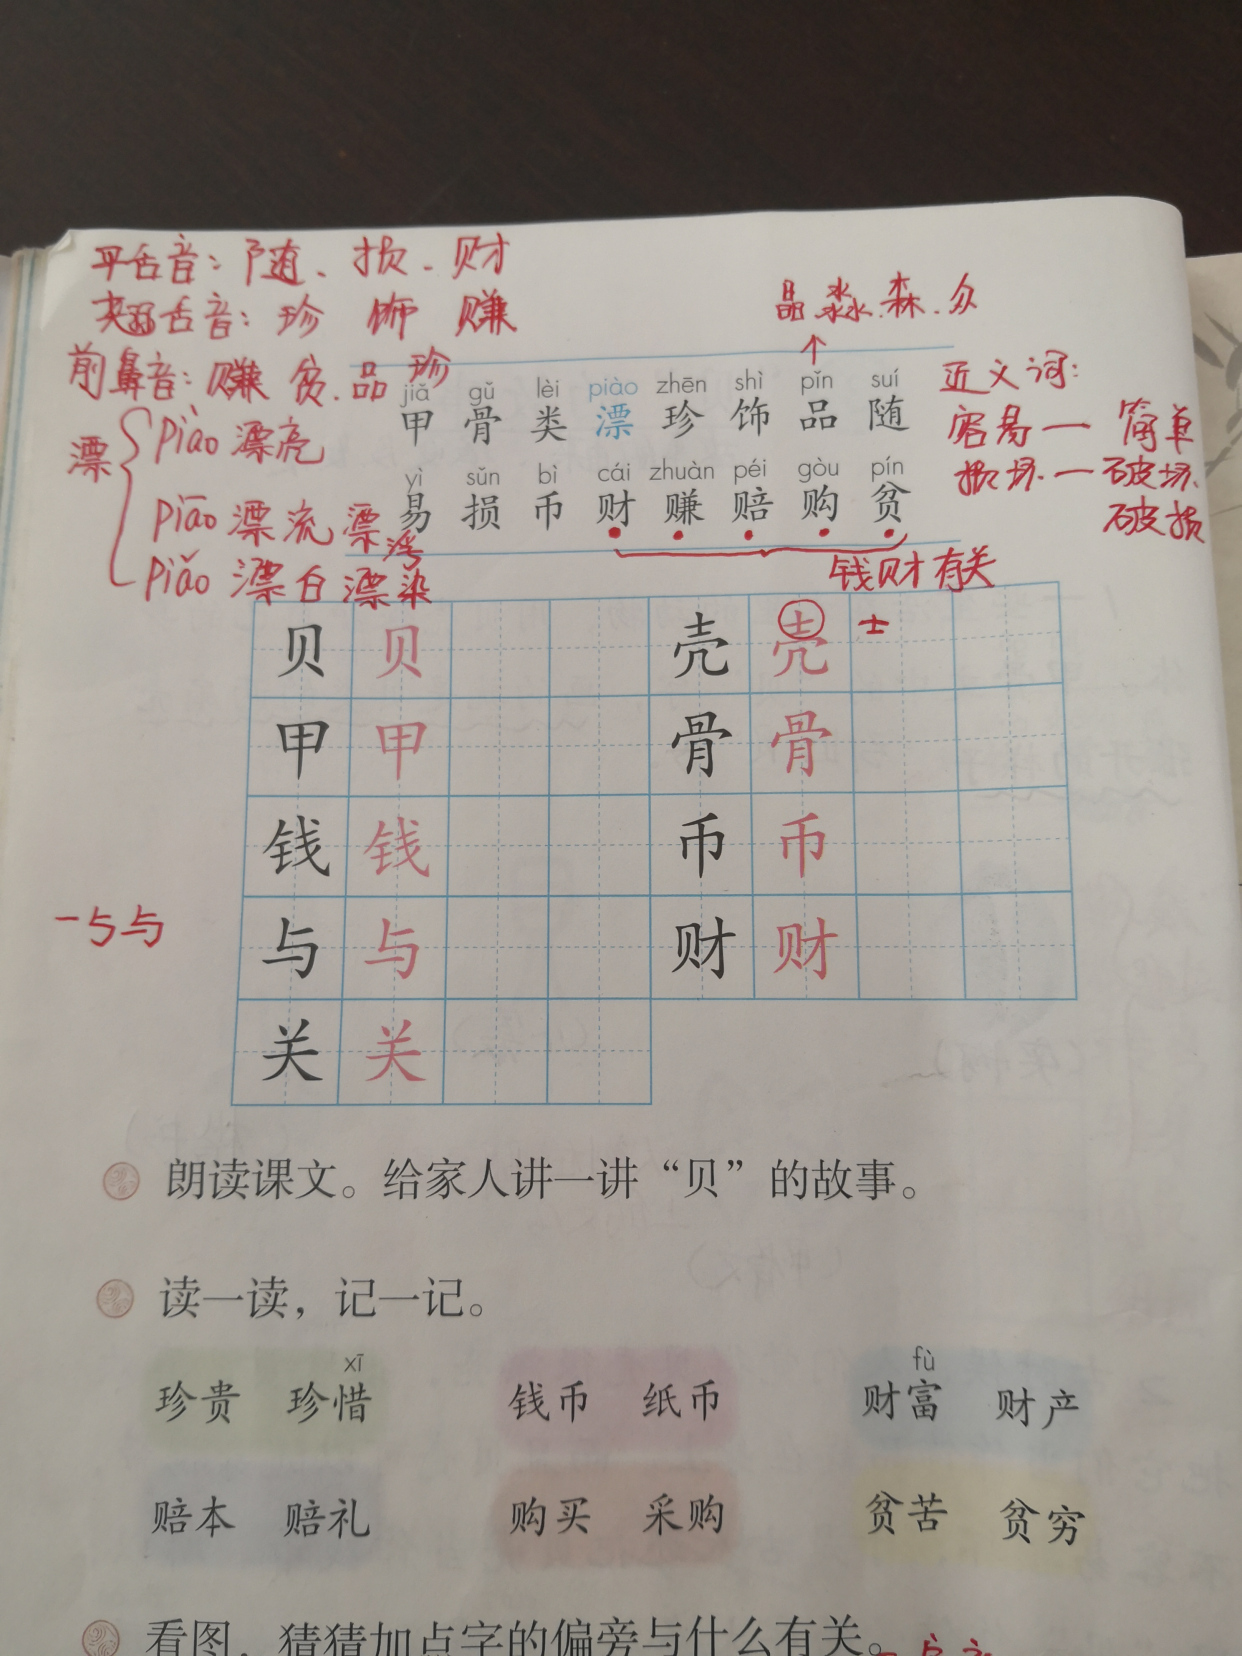 平舌音：随、损、财
翘舌音：珍 饰 赚
前鼻音：赚 贫 品 珍
晶.淼.森.众
jiǎ gǔ lèi piào zhēn shì pǐn suí
甲 骨 类 漂 珍 饰 品 随
yì sǔn bì cái zhuàn péi gòu pín
易 损 币 财 赚 赔 购 贫
漂
piào 漂亮
piāo 漂流 漂浮
piǎo 漂白 漂染
近义词：
容易一简单
损坏一破坏
破损
钱财有关
贝 贝 壳 壳 士
甲 甲 骨 骨
钱 钱 币 币
一与与
与 与 财 财
关 关
朗读课文。给家人讲一讲“贝”的故事。
读一读，记一记。
xī fù
珍贵 珍惜 钱币 纸币 财富 财产
赔本 赔礼 购买 采购 贫苦 贫穷
看图，猜猜加点字的偏旁与什么有关。